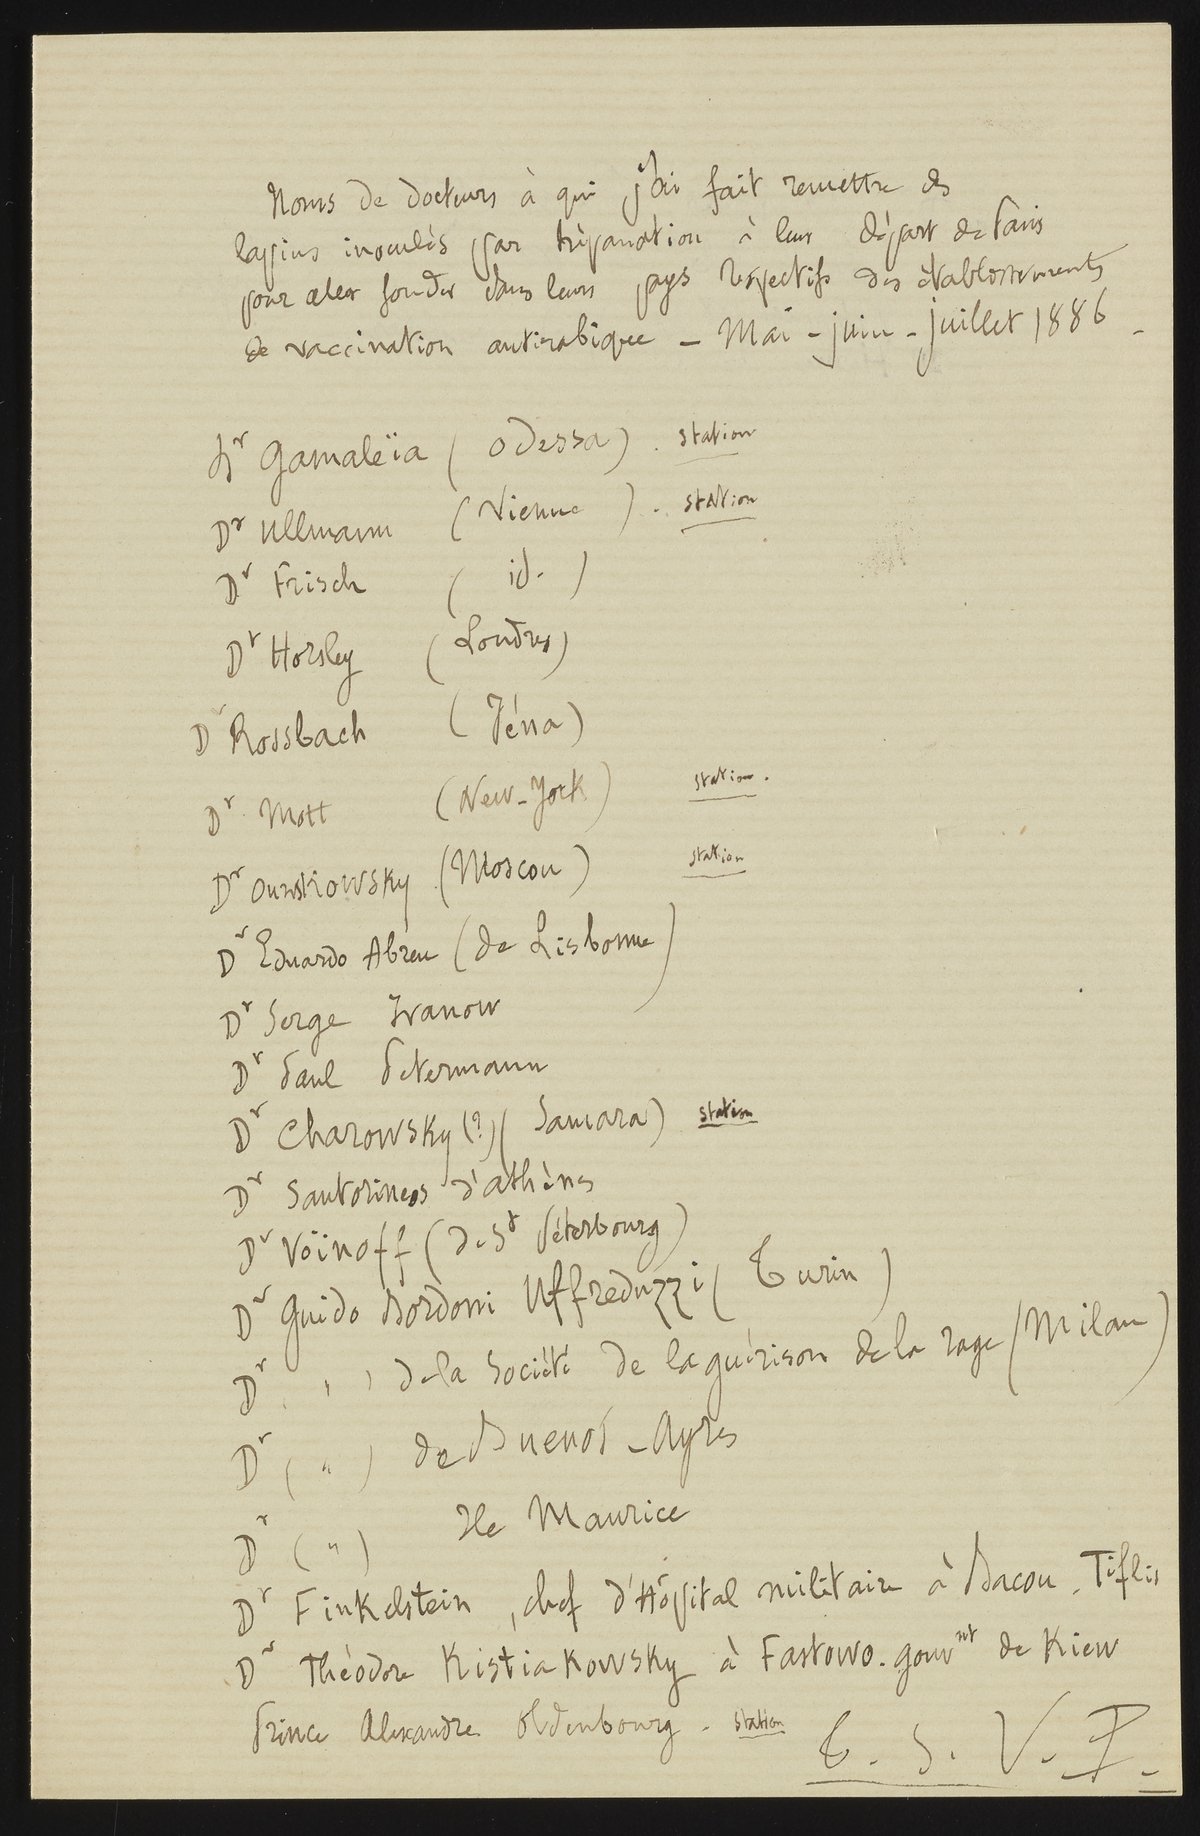 Noms de docteurs à qui j'ai fait remettre des
lapins inoculés par trépanation à leur départ de Paris
pour aller fonder dans leurs pays respectifs des établissements
de vaccination antirabique – Mai – juin – juillet 1886 –
Dr Gamaleïa (Odessa). station
Dr Ullmann (Vienne). station
Dr Frisch (id.)
Dr Horsley (Londres)
Dr Rossbach (Jéna)
Dr Mott (New-York) station.
Dr Ounskowsky (Moscou) station
Dr Eduardo Abreu (de Lisbonne)
Dr Serge Ivanow
Dr Paul Petermann
Dr Charowsky (?) (Samara) station
Dr Santorineos d'athènes
Dr Voïnoff (de St Péterbourg)
Dr Guido Bordoni Uffreduzzi (Turin)
Dr " de la Société de la guérison de la rage (Milan)
Dr ( " ) de Buenos-Ayres
Dr ( " ) Ile Maurice
Dr Finkelstein, chef d'Hôpital militaire à Bacou. Tiflis
Dr Théodore Kistiakowsky à Fastowo. gouvnt de Kiew
Prince Alexandre Oldenbourg. station
T. S. V. P.